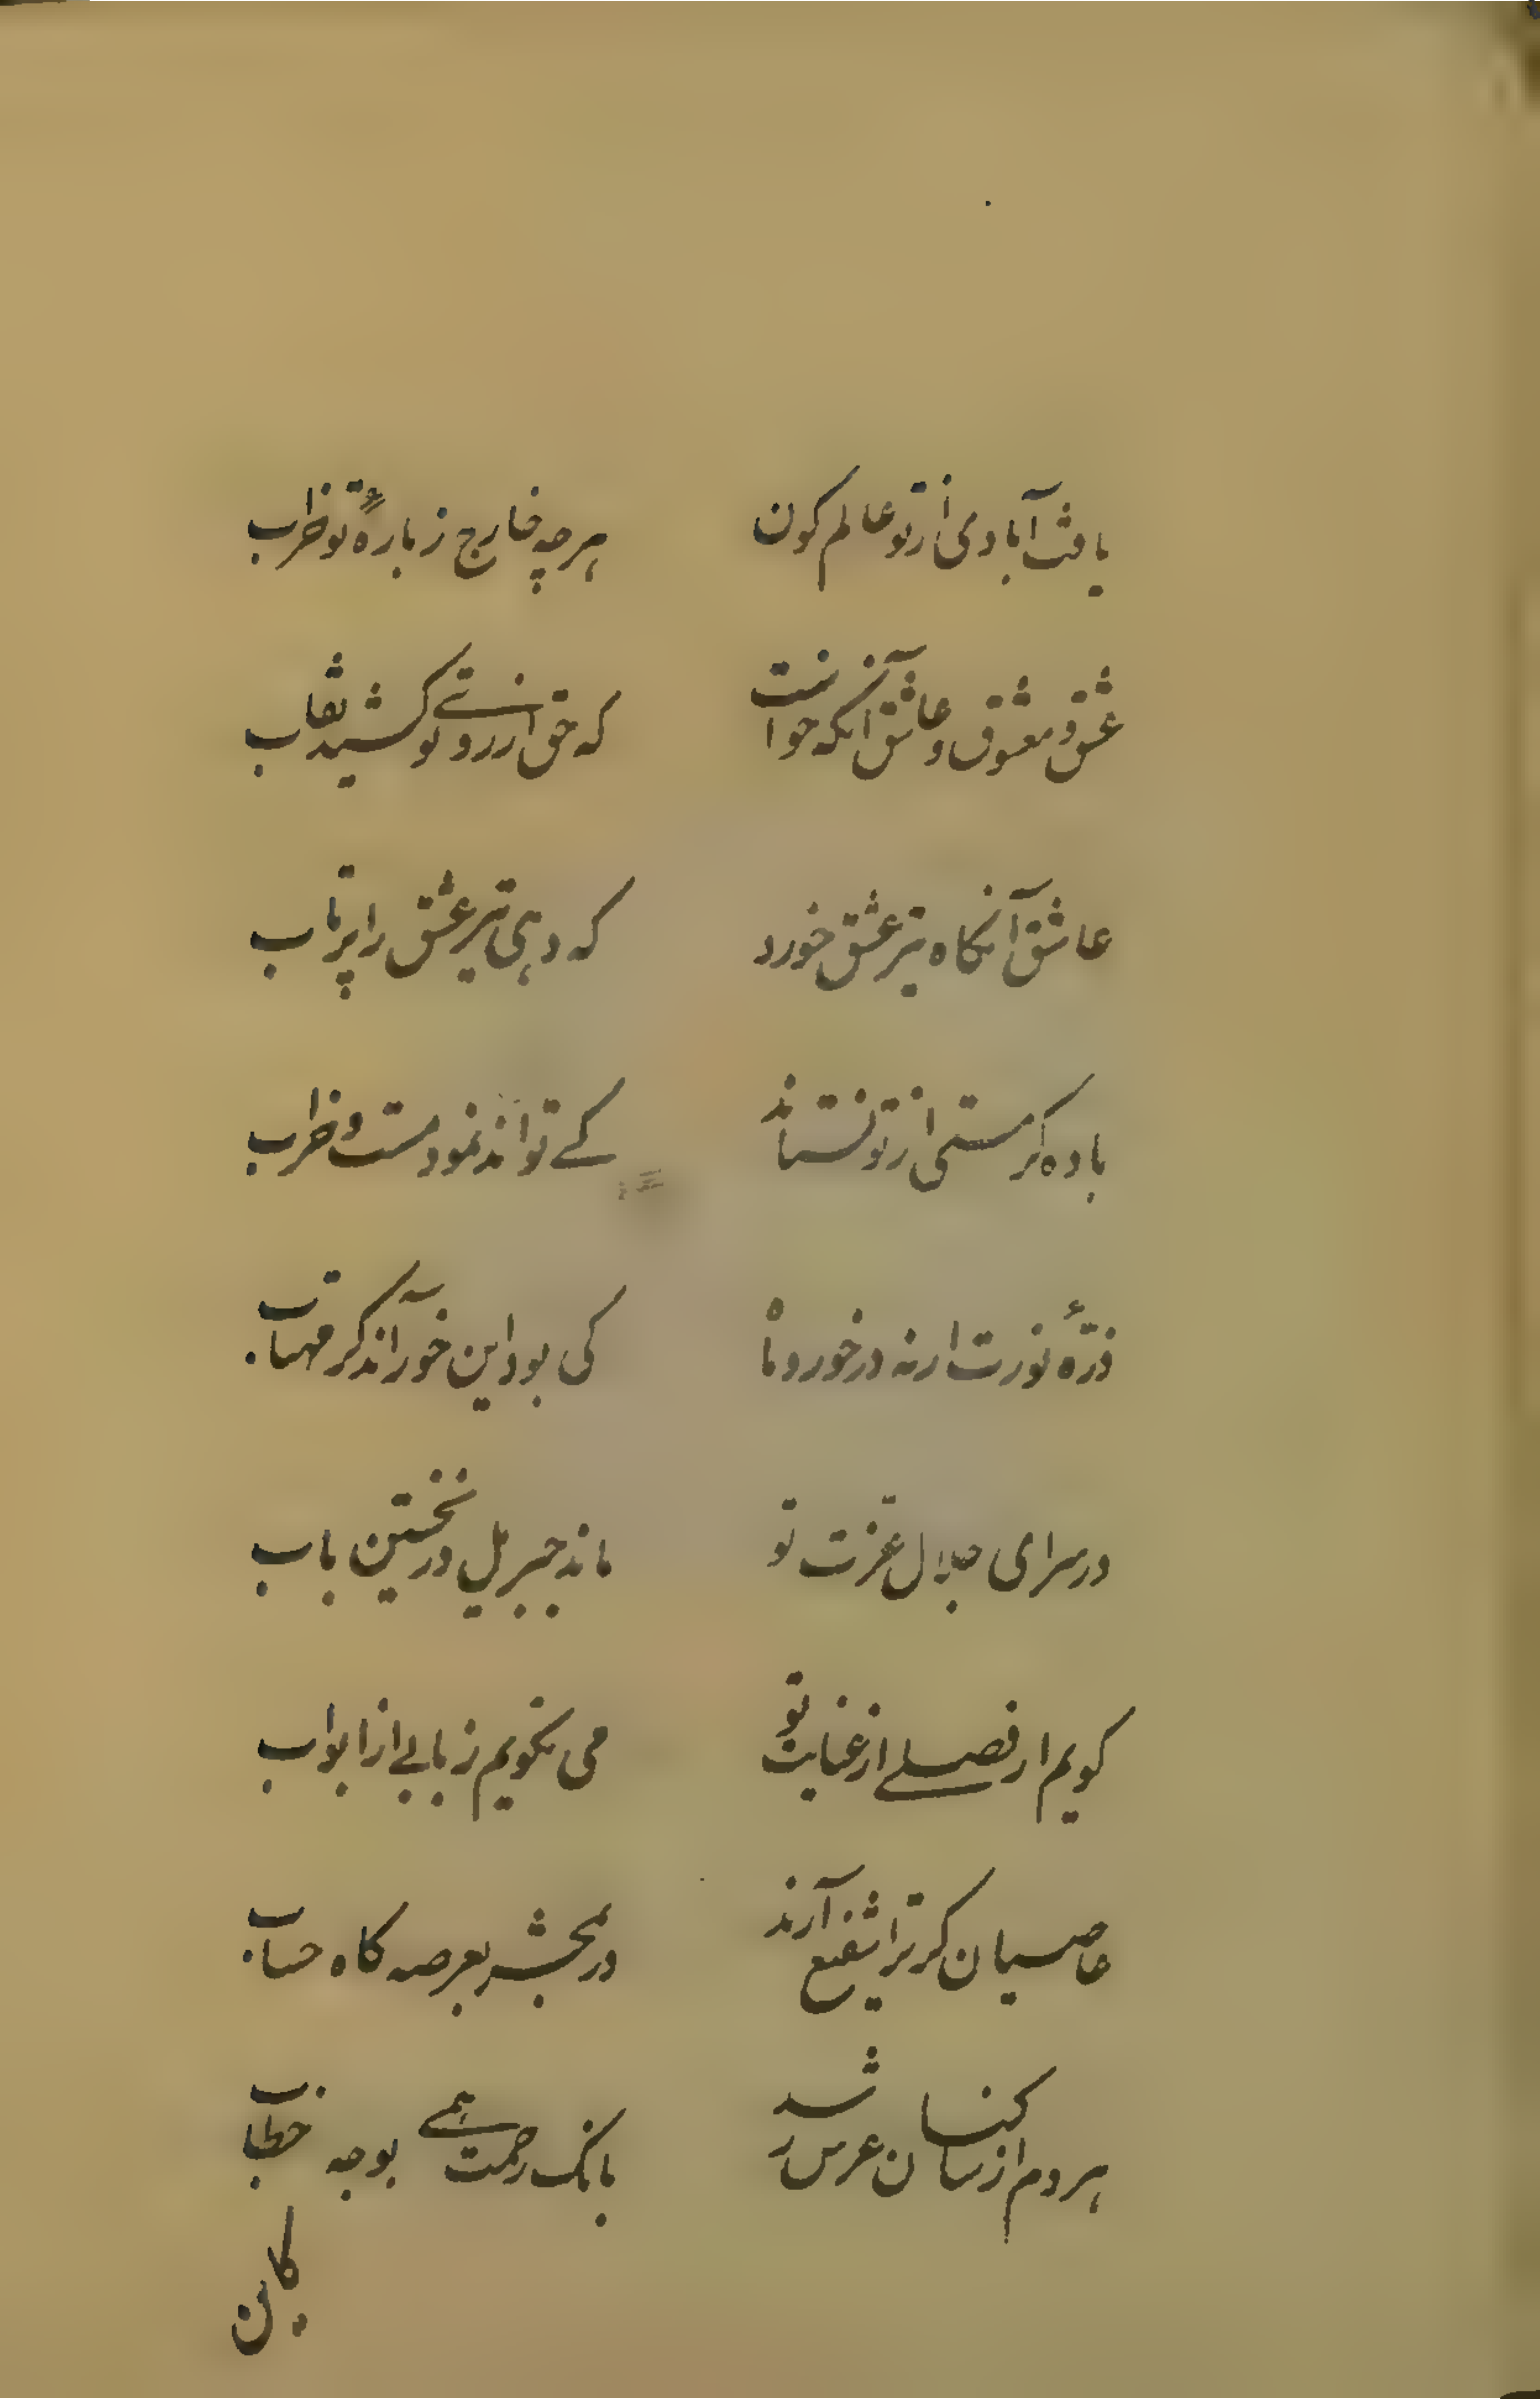 یافت آبادی از تو عالم کون هرچه خارج ز بارهٔ تو خراب
عشق و معشوق و عاشق آنکه خواست که حق از روی تو کشید نقاب
عاشق آنکاه تیر عشق خورد که دهی تیر عشق را پرتاب
باده کر مستی از تو نستاند کے تواند نمود مست و خراب
ذرّهٔ نورت ار نه در خور و ماه کی بود این خور آن دکر مهتاب
در سرای جلال عزّت تو ماند جبریل در نخستین باب
کویم ار فصلے از عنایت تو می نکویم ز بابے از ابواب
عاصیان کر ترا شفیع آرند در محشر بعرصه کاه حساب
هر دم از ساکنان عرش رسد بانک رحمت همے بوجه خطاب
کاین